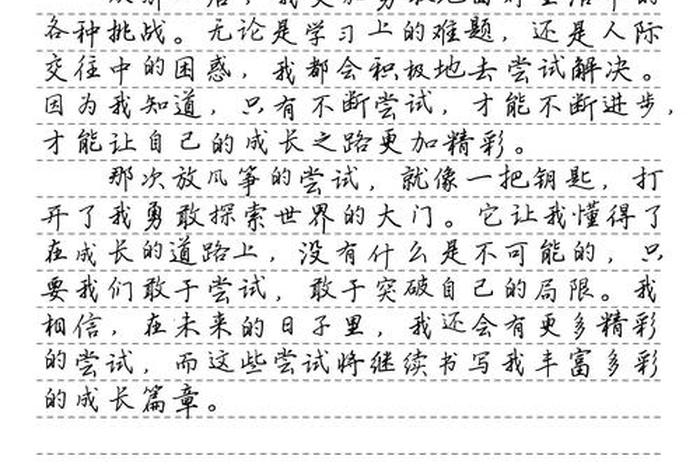 各种挑战。无论是学习上的难题，还是人际
交往中的困惑，我都会积极地去尝试解决。
因为我知道，只有不断尝试，才能不断进步，
才能让自己的成长之路更加精彩。
那次放风筝的尝试，就像一把钥匙，打
开了我勇敢探索世界的大门。它让我懂得了
在成长的道路上，没有什么是不可能的，只
要我们敢于尝试，敢于突破自己的局限。我
相信，在未来的日子里，我还会有更多精彩
的尝试，而这些尝试将继续书写我丰富多彩
的成长篇章。